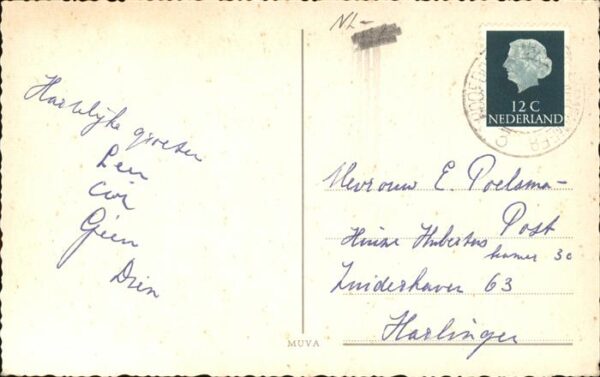 NL-
12 C
NEDERLAND
Hartelijke groeten
Leu
Cor
Gien
Dien
Mevrouw E. Poelsma-
Post
Huize Hubertus
kamer 30
Zuiderhaven 63
Harlingen
MUVA